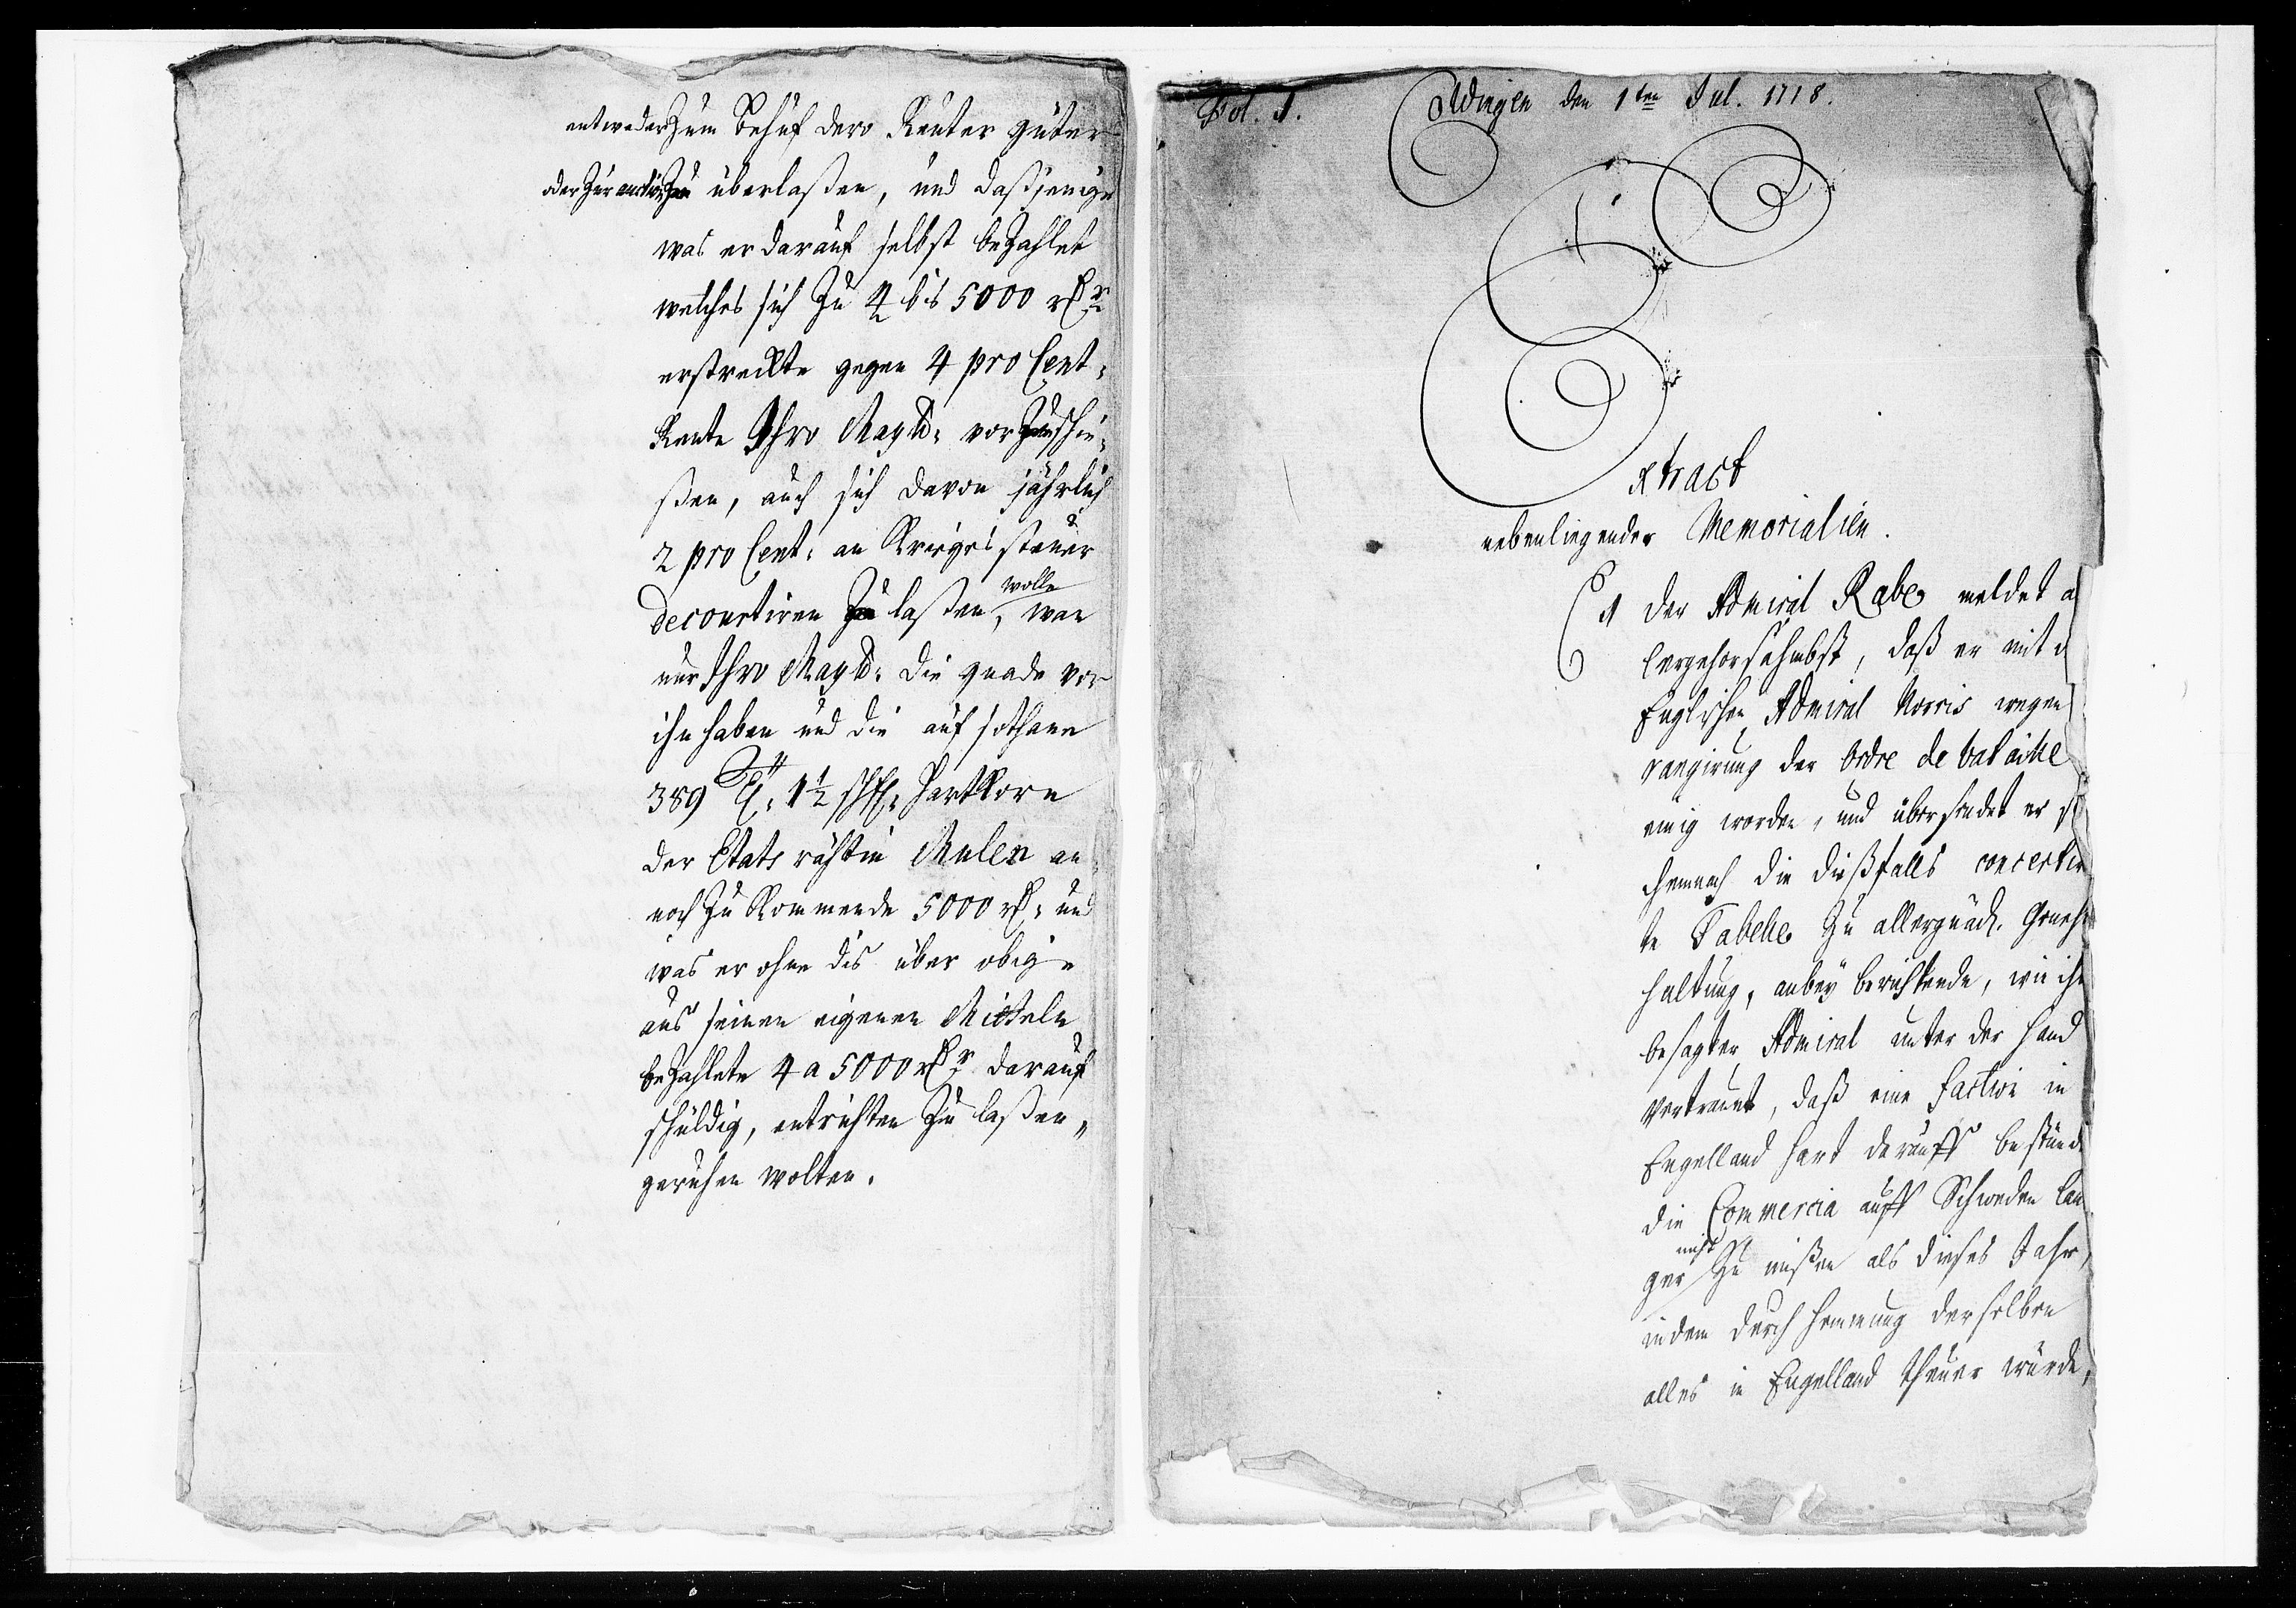 entweder zum Behuf dero Reuter güter
oder zur auction zu überlaßen, und daßjenige
was er darauf selbst bezahlet
welches sich zu 4 bis 5000 rthlr
erstreckte gegen 4 pro Cent:
Rente Ihro Mayttt: vorzuschie-
ßen, auch sich davon jährlich
2 pro Cent: an Kriegs steuer
decourtiren zu laßen, wolle wan
nur Ihro Maytt: die gnade vor
ihn haben und die auf sothane
389 1½ schfl: Hartkorn
der Etats räthin Mulen an-
noch zu kommende 5000 rthl: und
was er ohne dis über obige
aus seinen eigenen Mitteln
bezahlete 4 a 5000 rthlr darauf
schuldig, entrichten zu laßen,
geruhen wolten.
Fol. 1.
Coldingen den 1ten Jul. 1718.
Extract
nebenliegender Memorialien.
1 Der Admiral Rabe meldet a
lergehorsahmbst, daß er mit d
Englischen Admiral Norris wegen
rangirung der Ordre de bataille
einig worden, und übersendet er
hemnach die dießfalls concertir
te Tabelle zu allergnäd. Geneh
haltung, anbey berichtende, wie ihm
besagter Admiral unter der Hand
vertrauet, daß eine Faction in
Engelland hart darauff bestünde
die Commercia auff Schweden län
ger nicht zu mißen als dieses Jahr,
indem durch Hemmung derselben
alles in Engelland theuer würde,